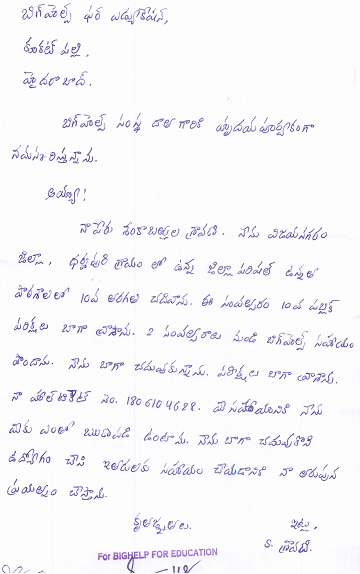 బిగ్‌హెల్ప్ ఫర్ ఎడ్యుకేషన్,
కూకట్ పల్లి,
హైదరాబాద్.
బిగ్‌హెల్ప్ సంస్థ దాత గారికి హృదయపూర్వకంగా
నమస్కరిస్తున్నాను.
అయ్యా!
నా పేరు శ్రావణి. నేను విజయనగరం
జిల్లా, ధర్మపురి గ్రామం లో ఉన్న జిల్లా పరిషత్ ఉన్నత
పాఠశాలలో 10వ తరగతి చదివాను. ఈ సంవత్సరం 10వ పబ్లిక్
పరీక్షలు బాగా వ్రాశాను. 2 సంవత్సరాల నుండి బిగ్‌హెల్ప్ సహాయం
పొందాను. నేను బాగా చదువుకున్నాను. పరీక్షలు బాగా వ్రాశాను.
నా హాల్‌టికెట్ నెం. 1806104628. మీ సహాయానికి నేను
మీకు ఎంతో ఋణపడి ఉంటాను. నేను బాగా చదువుకొని
ఉద్యోగం చేసి ఇతరులకు సహాయం చేయడానికి నా తరుపున
ప్రయత్నం చేస్తాను.
కృతజ్ఞతలు. ఇట్లు,
శ్రావణి.
For BIGHELP FOR EDUCATION